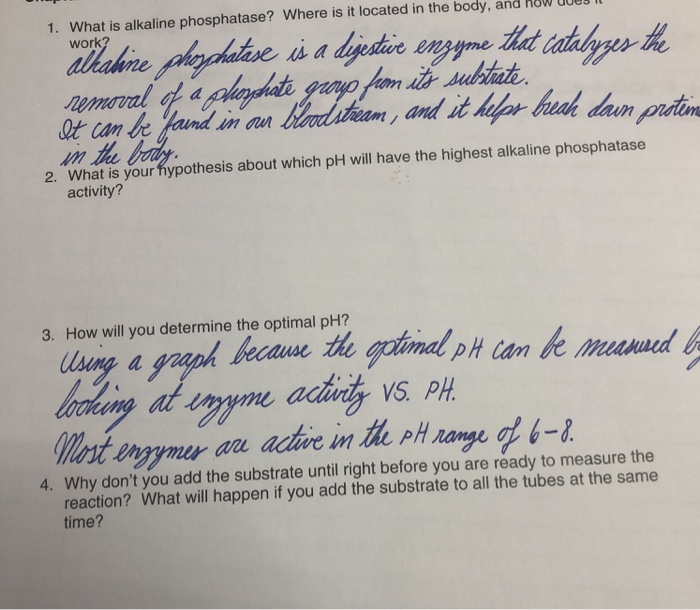 1. What is alkaline phosphatase? Where is it located in the body, and how does it
work?
alkaline phosphatase is a digestive enzyme that catalyzes the
removal of a phosphate group from its substrate.
It can be found in our bloodstream, and it helps break down protein
in the body.
2. What is your hypothesis about which pH will have the highest alkaline phosphatase
activity?
3. How will you determine the optimal pH?
Using a graph because the optimal pH can be measured
looking at enzyme activity VS. PH.
Most enzymes are active in the pH range of 6-8.
4. Why don't you add the substrate until right before you are ready to measure the
reaction? What will happen if you add the substrate to all the tubes at the same
time?